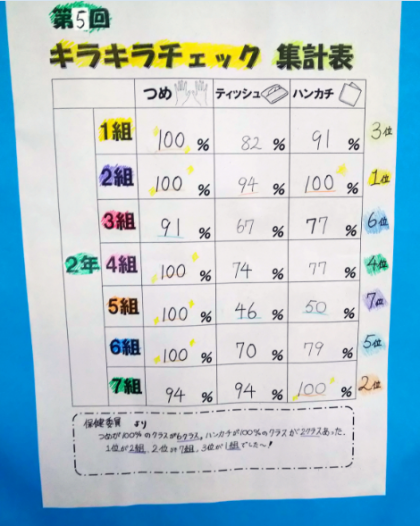 第5回
キラキラチェック 集計表
つめ ティッシュ ハンカチ
2年
1組 100% 82% 91% 3位
2組 100% 94% 100% 1位
3組 91% 67% 77% 6位
4組 100% 74% 77% 4位
5組 100% 46% 50% 7位
6組 100% 70% 79% 5位
7組 94% 94% 100% 2位
保健委員 より
つめが100%のクラスが6クラス。ハンカチが100%のクラスが2クラスあった。
1位が2組、2位が7組、3位が1組でした〜!